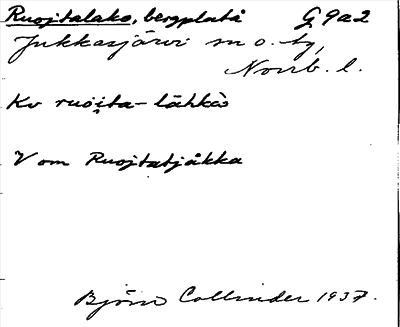 Ruojtalako, bergplatå G 9a2
Jukkasjärvi sn o. tg,
Norrb. l.
Kv ruoi̯ta-lähkȯ
V om Ruojtatjåkka
Björn Collinder 1937.